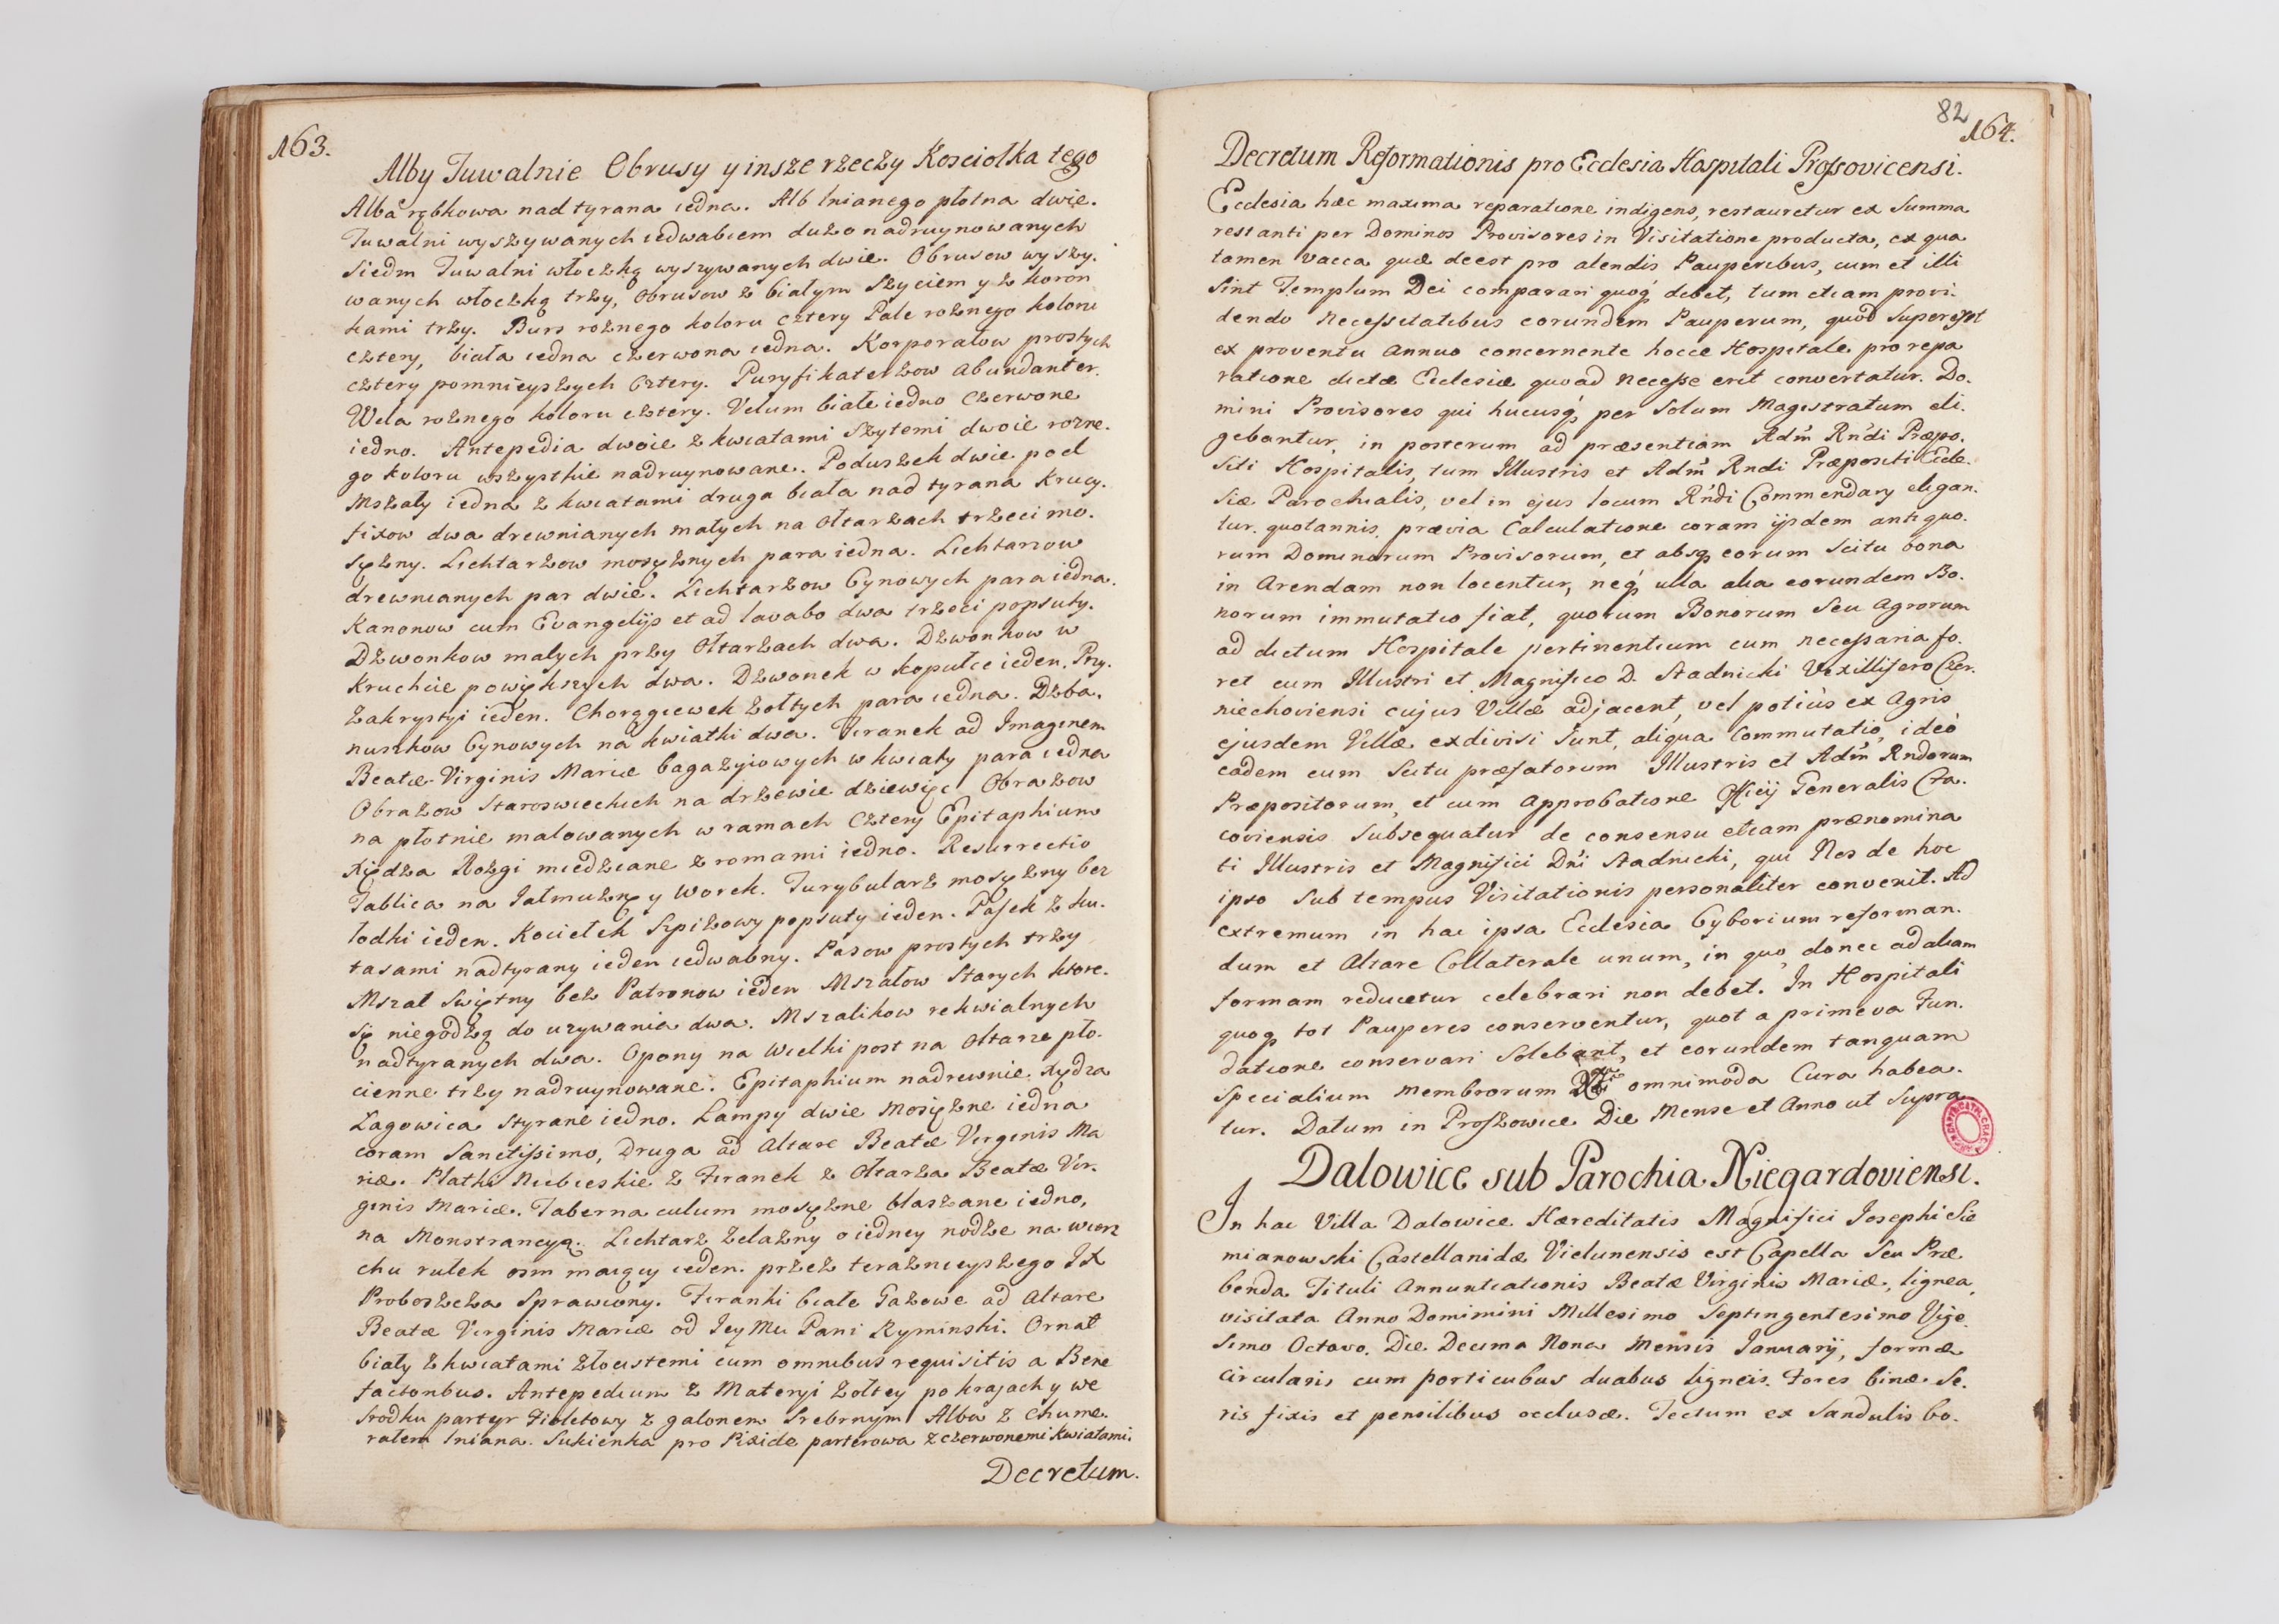 163.
Alby Tuwalnie Obrusy y insze rzeczy Kosciołka tego
Alba rąbkowa nadtyrana iedna. Alb lnianego płotna dwie.
Tuwalni wyszywanych iedwabiem dużo nadruynowanych
Siedm Tuwalni włoczką wyszywanych dwie. Obrusow wyszy-
wanych włoczką trzy, Obrusow z białym Szyciem y z koron
kami trzy. Burs rożnego koloru cztery Pale rożnego koloru
cztery, biała iedna czerwona iedna. Korporałow prostych
cztery pomnieyszych Cztery. Puryfikaterzow abundanter.
Wela rożnego koloru cztery. Velum białe iedno Czerwone
iedno. Antepedia dwoie z kwiatami Szytemi dwoie rożne-
go koloru wszystkie nadruynowane. Poduszek dwie pod
Mszały iedna z kwiatami druga biała nadtyrana Krucy-
fixow dwa drewnianych małych na Ołtarzach trzeci mo-
siężny. Lichtarzow mosiężnych para iedna. Lichtarzow
drewnianych par dwie. Lichtarzow Cynowych para iedna.
Kanonow cum Evangelijs et ad lavabo dwa trzeci popsuty.
Dzwonkow małych przy Ołtarzach dwa. Dzwonkow w
kruchcie powiększych dwa. Dzwonek w kopułce ieden. Przy
Zakrystyi ieden. Chorągiewek żołtych para iedna. Dzba-
nuszkow Cynowych na kwiatki dwa. Firanek ad Imaginem
Beatæ Virginis Mariæ bagazyiowych w kwiaty para iedna
Obrazow Staroswieckich na drzewie dziewięć Obrazow
na płotnie malowanych w ramach Cztery Epitaphium
Xiędza Rożgi miedziane z romami iedno. Resurrectio
Tablica na Jałmużnę y Worek. Turybularz mosiężny bez
łodki ieden. Kociełek Szpiżowy popsuty ieden. Pasek z ku-
tasami nadtyrany ieden iedwabny. Pasow prostych trzy
Mszał Swiętny bez Patronow ieden Mszałow Starych ktore-
się niegodzą do używania dwa. Mszalikow rekwialnych
nadtyranych dwa. Opony na Wielki post na Ołtarze pło-
cienne trzy nadruynowane. Epitaphium nadrewnie Xydza
Lagowica Styrane iedno. Lampy dwie Mosiężne iedna
coram Sanctissimo, Druga ad Altare Beatæ Virginis Ma
riæ. Płatki Niebieskie z Firanek z Ołtarza Beatæ Vir-
ginis Mariæ. Tabernaculum mosiężne blaszane iedno,
na Monstrancyą. Lichtarz Żelazny o iedney nodze na wierz
chu rulek osm maiący ieden. przez teraznieyszego JX
Proboszcza Sprawiony. Firanki białe Gazowe ad Altare
Beatæ Virginis Mariæ od Jey Mci Pani Ryminski. Ornat
biały z kwiatami złocistemi cum omnibus requisitis a Bene
factoribus. Antepedium z Materyi żołtey po krajach y we
Srodku partyr Fioletowy z galonem Srebrnym Alba z chume-
rałem lniana. Sukienka pro Pixide parterowa z czerwonemi kwiatami.
Decretum.
82
164.
Decretum Reformationis pro Ecclesia Hospitali Prossovicensi.
Ecclesia hæc maxima reparatione indigens, restauretur ex Summa
restanti per Dominos Provisores in Visitatione producta, ex qua
tamen vacca quæ deest pro alendis Pauperibus, cum et illi
Sint Templum Dei comparari quoq́ debet, tum etiam provi-
dendo necessitatibus eorundem Pauperum, quod Superest
ex proventu Annuo concernente hocce Hospitale pro repa
ratione dictæ Ecclesiæ quoad necesse erit convertatur. Do-
mini Provisores qui hucusq́ per Solum Magistratum eli-
gebantur, in posterum ad præsentiam Adm̃ Rńdi Præpo-
siti Hospitalis, tum Illustris et Adm̃ Rndi Præpositi Eccle-
siæ Parochialis, vel in ejus locum Rńdi Commendarij eligan-
tur quotannis, prævia Calculatione coram ijsdem antiquo-
rum Dominorum Provisorum, et absq eorum Scitu bona
in Arendam non locentur, neq́ ulla alia eorundem Bo-
norum immutatio fiat, quorum Bonorum Seu Agrorum
ad dictum Hospitale pertinentium cum necessaria fo-
ret cum Illustri et Magnifico D. Stadnicki Vexillifero Czer-
niechoviensi cujus Villæ adjacent, vel potiùs ex Agris
ejusdem Villæ exdivisi Sunt, aliqua Commutatio, ideò
eadem cum Scitu præfatorum Illustris et Adm̃ Rndorum
Præpositorum, et cum Approbatione Officij Generalis Cra-
coviensis Subsequatur de consensu etiam prænomina
ti Illustris et Magnifici Dńi Stadnicki, qui Nos de hoc
ipso Sub tempus Visitationis personaliter convenit. Ad
extremum in hac ipsa Ecclesia Cyborium reforman-
dum et Altare Collaterale unum, in quo, donec ad aliam
formam reducetur celebrari non debet. In Hospitali
quoq tot Pauperes conserventur, quot a primeva Fun-
datione conservari Solebant, et eorundem tanquam
Specialium Membrorum Xti omnimoda Cura habea-
tur. Datum in Proszowice Die Mense et Anno ut Supra
Dalowice sub Parochia Niegardoviensi.
In hac Villa Dalowice Hæreditatis Magnifici Josephi Sie
mianowski Castellanidæ Vielunensis est Capella Seu Præ
benda Tituli Annuntiationis Beatæ Virginis Mariæ, lignea,
visitata Anno Domimini Millesimo Septingentesimo Vige
simo Octavo. Die Decima Nona Mensis Januarij, formæ
circularis cum porticubus duabus ligneis. Fores binæ Se-
ris fixis et pensilibus occlusæ. Tectum ex Sandulis bo-